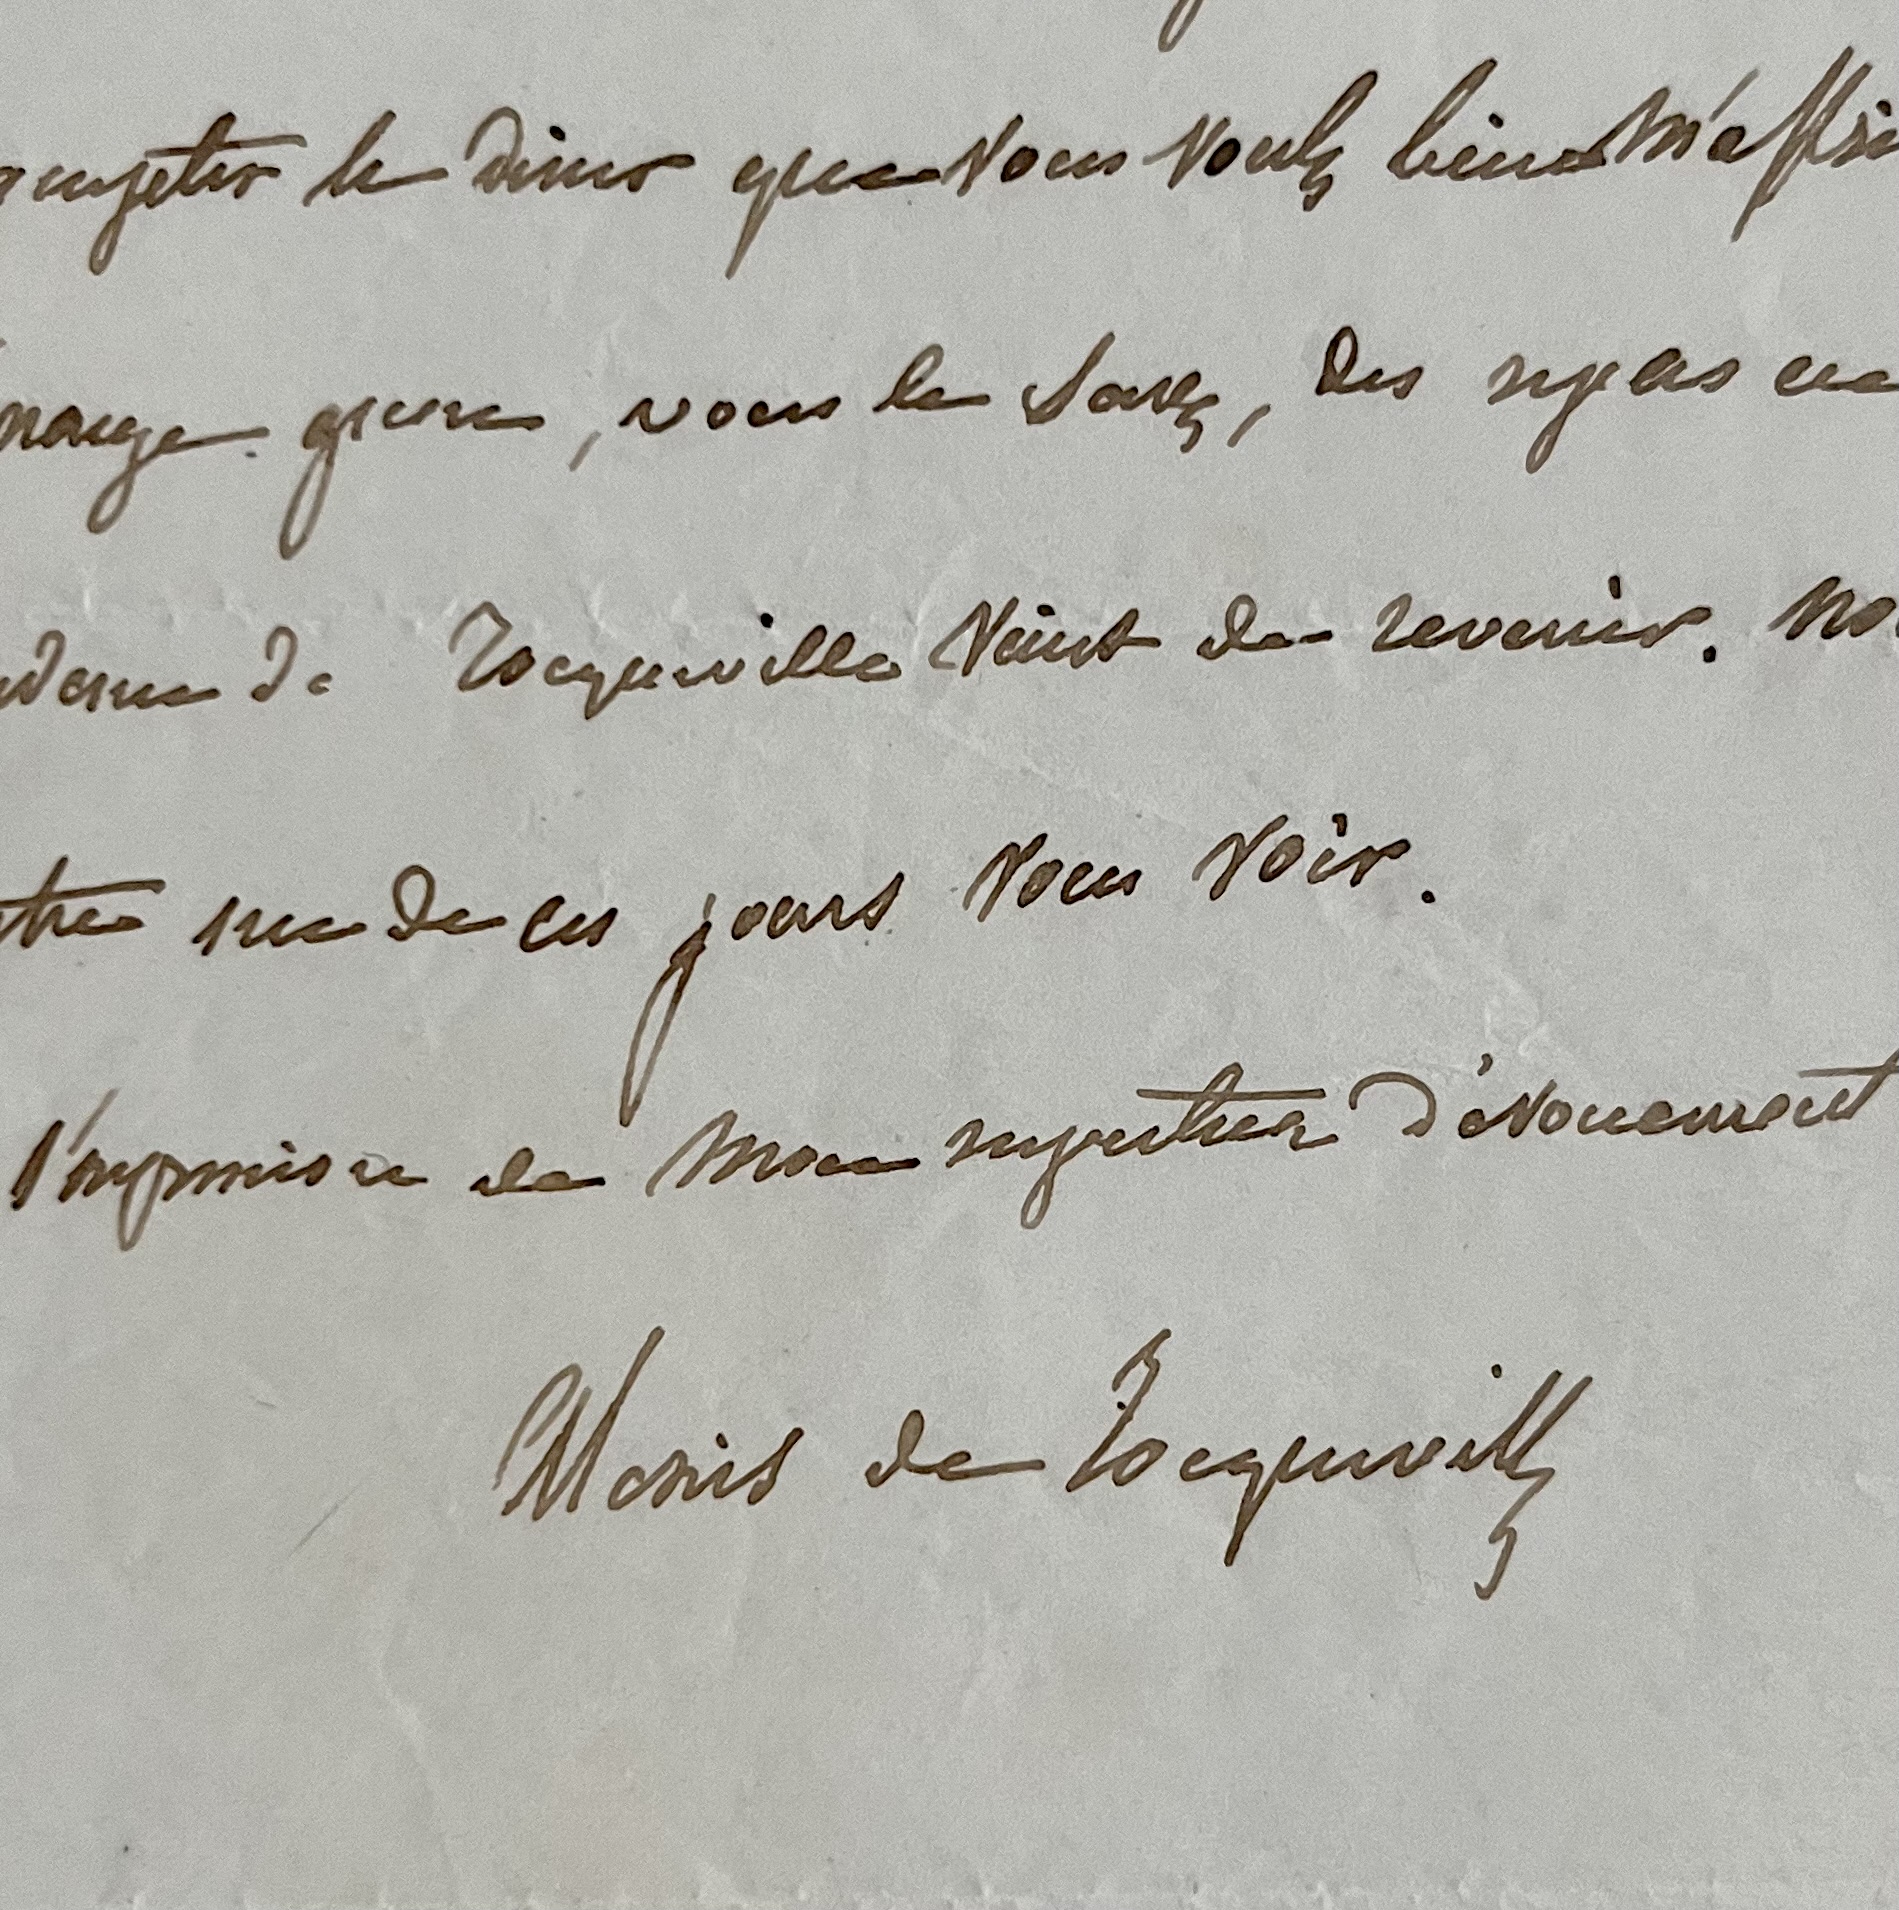 le diner que vous voulez bien m'offrir
guere, vous le savez, des repas en
de Tocqueville vient de revenir. No
un de ces jours vous voir.
l'expression de mon respectueux dévouement
Alexis de Tocqueville